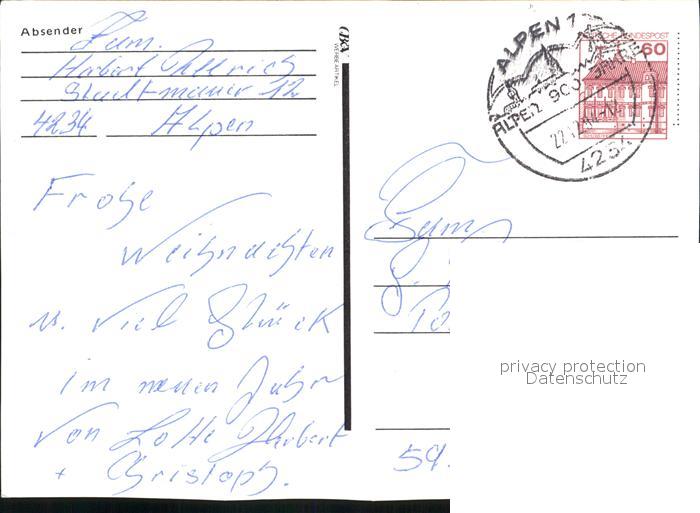 Absender Fam.
Herbert Ullrich
Stadtmauer 12
4234 Alpen
Frohe
Weihnachten
u. viel Glück
im neuen Jahr
von Lotte Herbert
+ Christoph.
ALPEN 1
ALPEN 900 JAHRE
4234
DEUTSCHE BUNDESPOST
60
Fam
privacy protection
Datenschutz
59.